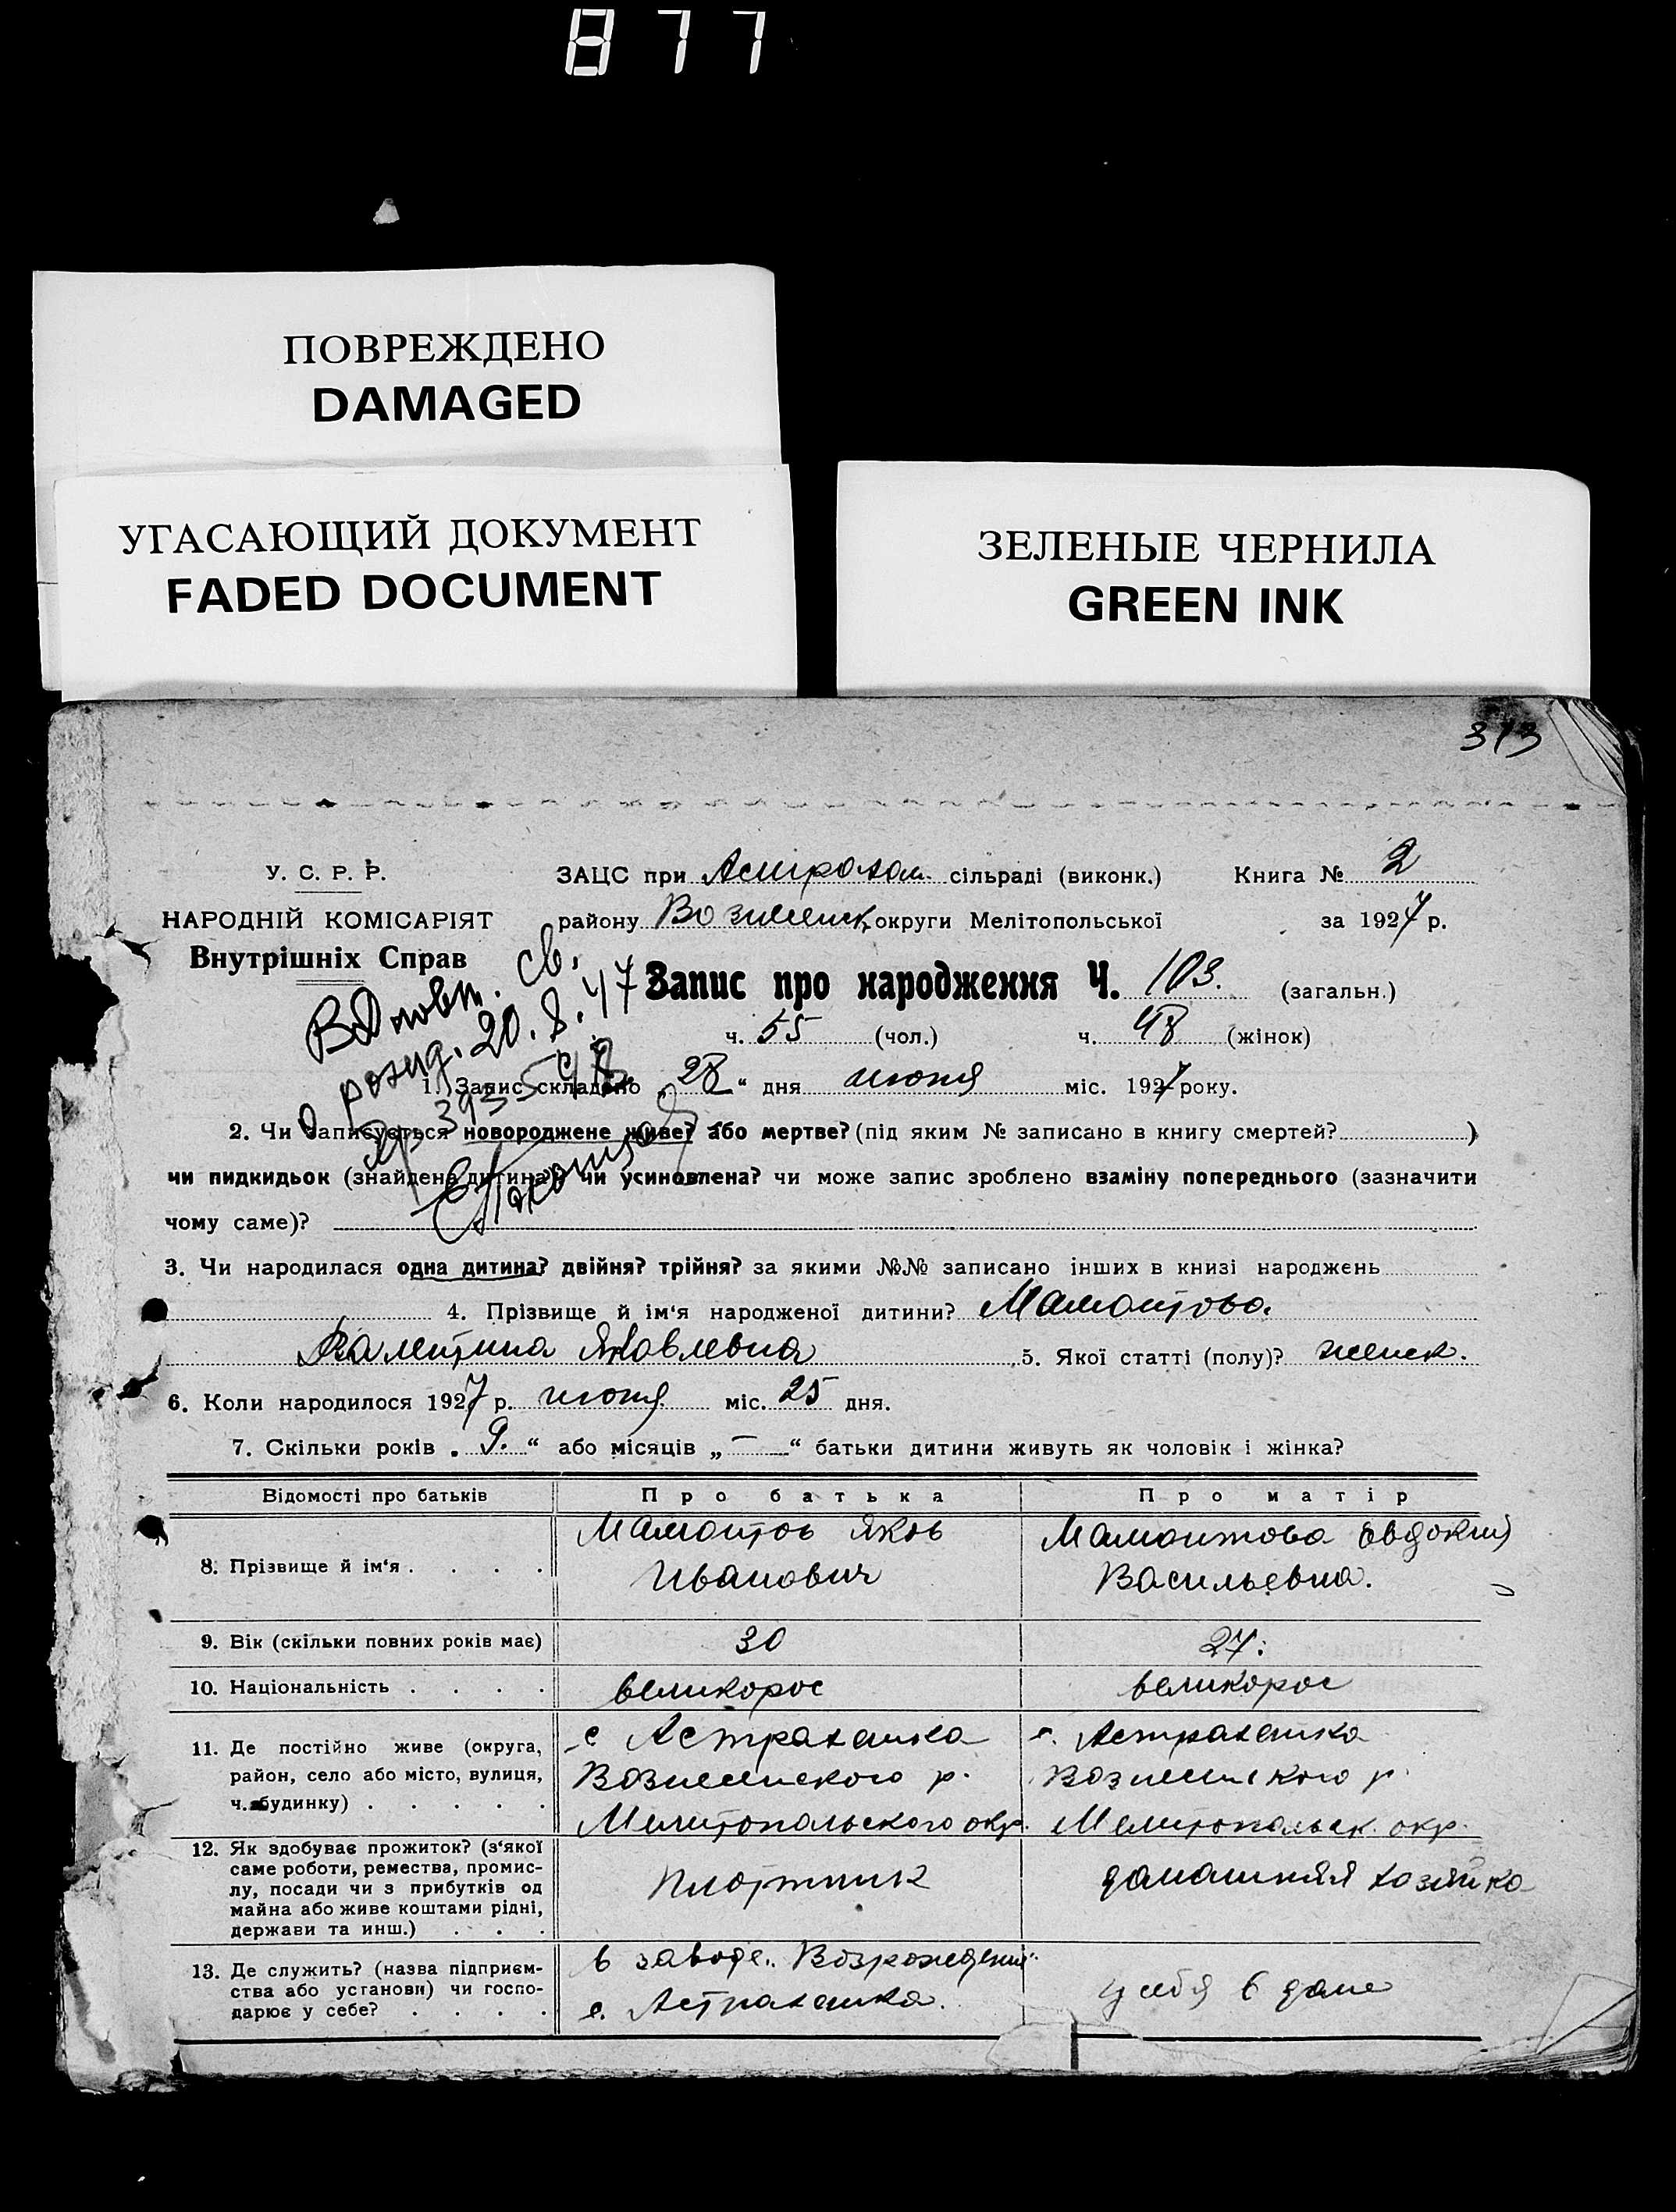 877
ПОВРЕЖДЕНО
DAMAGED
УГАСАЮЩИЙ ДОКУМЕНТ
FADED DOCUMENT
ЗЕЛЕНЫЕ ЧЕРНИЛА
GREEN INK
313
У. С. Р. Р.
НАРОДНІЙ КОМІСАРІЯТ
Внутрішніх Справ
ЗАЦС при Астрахан. сільраді (виконк.) Книга № 2
району Вознесенск. округи Мелітопольської за 1927 р.
Запис про народження Ч. 103. (загальн.)
ч. 55 (чол.) ч. 48 (жінок)
св.
20. 8. 47
1. Запис складено „28“ дня июня міс. 1927 року.
2. Чи записується новороджене живе? або мертве? (під яким № записано в книгу смертей? )
чи пидкидьок (знайдена дитина)? чи усиновлена? чи може запис зроблено взаміну попереднього (зазначити
чому саме)?
3. Чи народилася одна дитина? двійня? трійня? за якими №№ записано інших в книзі народжень
4. Прізвище й ім‘я народженої дитини? Мамонтова
Валентина Яковлевна 5. Якої статті (полу)? женск.
6. Коли народилося 1927 р. июня міс. 25 дня.
7. Скільки років „9.“ або місяців „—“ батьки дитини живуть як чоловік і жінка?
Відомості про батьків Про батька Про матір
8. Прізвище й ім‘я . . . . Мамонтов Яков Иванович Мамонтова Евдокия Васильевна.
9. Вік (скільки повних років має) 30 27.
10. Національність . . . . великорос великорос
11. Де постійно живе (округа, район, село або місто, вулиця, ч. будинку) . . . . . с Астраханка Вознесенского р. Мелитопольского окр. с. Астраханка Вознесенского р. Мелитопольск. окр.
12. Як здобуває прожиток? (з‘якої саме роботи, ремества, промислу, посади чи з прибутків од майна або живе коштами рідні, держави та инш.) . . . Плотник домашняя хозяйка
13. Де служить? (назва підприємства або установи) чи господарює у себе? . . . . в заводе „Возрождения“ с. Астраханка. у себя в доме